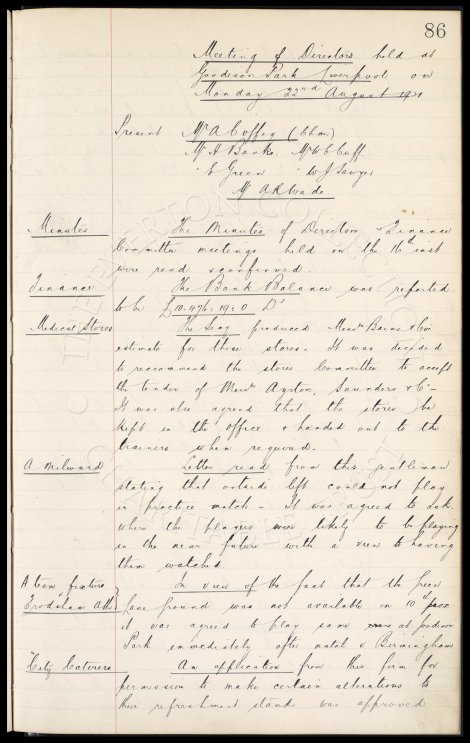 86
Meeting of Directors held at
Goodison Park Liverpool on
Monday 22nd August 1921
Present Mr A Coffey (Chair)
Mr A Banks, Mr W C Cuff
" E Green " W J Sawyer
Mr A R Wade
Minutes The Minutes of Directors & Finance
Committee meetings held on the 16th inst
were read & confirmed.
Finance The Bank Balance was reported
to be £10.476:19:0 Dr
Medical Stores The Secy produced Messrs & Co's
estimate for these stores. It was decided
to recommend the stores Committee to accept
the tender of Messrs Ayrton, Saunders & Co. -
It was also agreed that the stores be
kept in the office & handed out to the
trainers when required.
A Milward Letter read from this gentleman
stating that outside left could not play
in practice match - It was agreed to ask
where the players were likely to be playing
in the near future with a view to having
them watched.
A team fixture In view of the fact that the
Frodsham Ath Lane ground was not available on 10th prox
it was agreed to play same at Goodison
Park immediately after match v Birmingham
City Caterers An application from this firm for
permission to make certain alterations to
their refreshment stands was approved
THE EVERTON COLLECTION